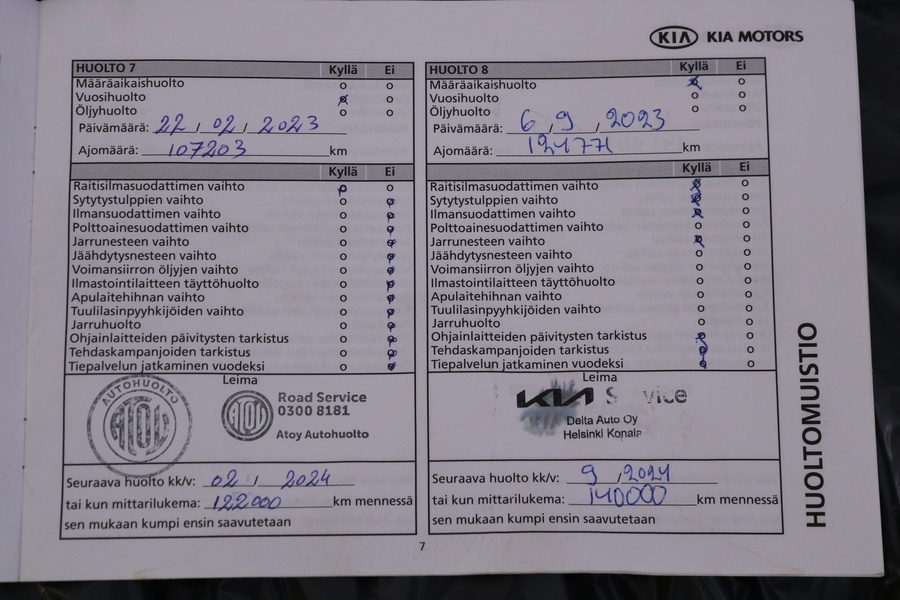 KIA KIA MOTORS
HUOLTO 7 Kyllä Ei
Määräaikaishuolto o o
Vuosihuolto o o
Öljyhuolto o o
Päivämäärä: 22 / 02 / 2023
Ajomäärä: 107203 km
Kyllä Ei
Raitisilmasuodattimen vaihto o o
Sytytystulppien vaihto o o
Ilmansuodattimen vaihto o o
Polttoainesuodattimen vaihto o o
Jarrunesteen vaihto o o
Jäähdytysnesteen vaihto o o
Voimansiirron öljyjen vaihto o o
Ilmastointilaitteen täyttöhuolto o o
Apulaitehihnan vaihto o o
Tuulilasinpyyhkijöiden vaihto o o
Jarruhuolto o o
Ohjainlaitteiden päivitysten tarkistus o o
Tehdaskampanjoiden tarkistus o o
Tiepalvelun jatkaminen vuodeksi o o
Leima
AUTOHUOLTO
ATOY
ATOY
Road Service
0300 8181
Atoy Autohuolto
Seuraava huolto kk/v: 02 / 2024
tai kun mittarilukema: 122000 km mennessä
sen mukaan kumpi ensin saavutetaan
HUOLTO 8 Kyllä Ei
Määräaikaishuolto o o
Vuosihuolto o o
Öljyhuolto o o
Päivämäärä: 6 / 9 / 2023
Ajomäärä: km
Kyllä Ei
Raitisilmasuodattimen vaihto o o
Sytytystulppien vaihto o o
Ilmansuodattimen vaihto o o
Polttoainesuodattimen vaihto o o
Jarrunesteen vaihto o o
Jäähdytysnesteen vaihto o o
Voimansiirron öljyjen vaihto o o
Ilmastointilaitteen täyttöhuolto o o
Apulaitehihnan vaihto o o
Tuulilasinpyyhkijöiden vaihto o o
Jarruhuolto o o
Ohjainlaitteiden päivitysten tarkistus o o
Tehdaskampanjoiden tarkistus o o
Tiepalvelun jatkaminen vuodeksi o o
Leima
KIA
Delta Auto Oy
Helsinki Konala
Seuraava huolto kk/v: 9 / 2024
tai kun mittarilukema: 140000 km mennessä
sen mukaan kumpi ensin saavutetaan
HUOLTOMUISTIO
7